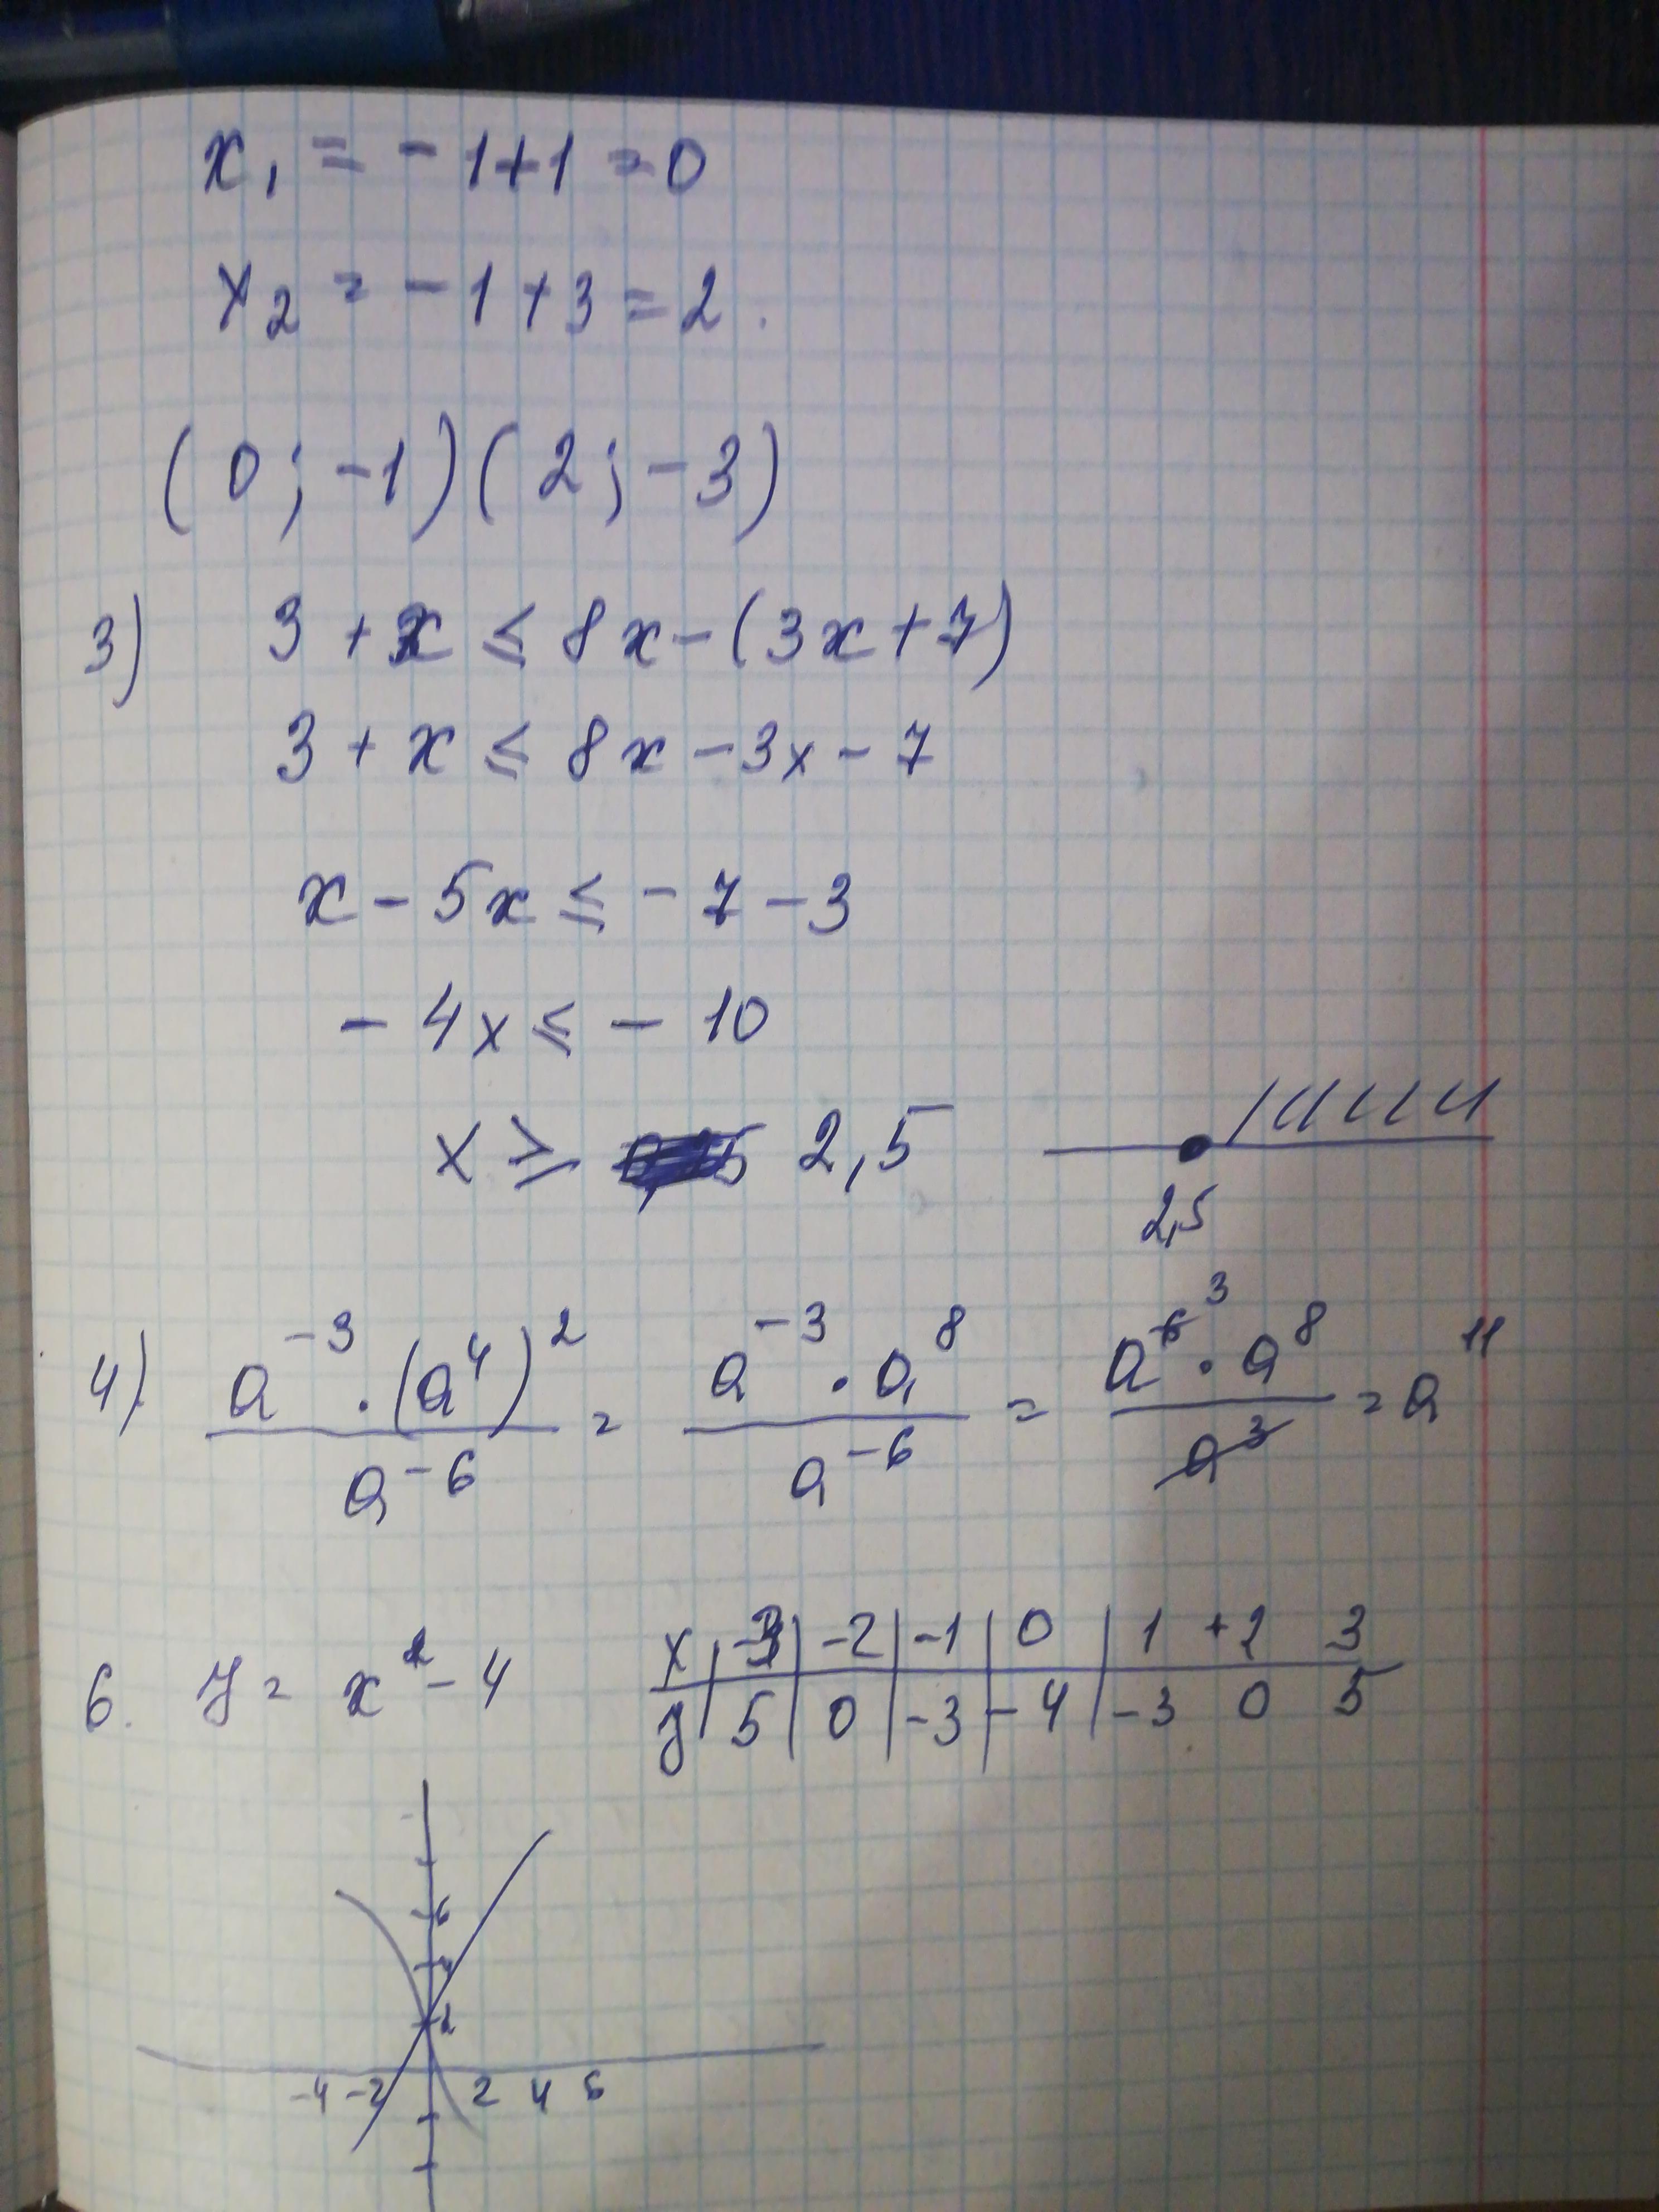 x₁ = - 1+1 = 0
x₂ = - 1+3 = 2.
(0; -1) (2; -3)
3) 3 + x ≤ 8x - (3x + 7)
3 + x ≤ 8x - 3x - 7
x - 5x ≤ - 7 - 3
- 4x ≤ - 10
x ≥ 2,5
2,5
4) a⁻³ · (a⁴)² / a⁻⁶ = a⁻³ · a⁸ / a⁻⁶ = a⁶ ³ · a⁸ / a³ = a¹¹
6. y = x² - 4
x | -3 | -2 | -1 | 0 | 1 +2 3
y | 5 | 0 | -3 | -4 | -3 0 5
6
4
2
-4 -2 2 4 6